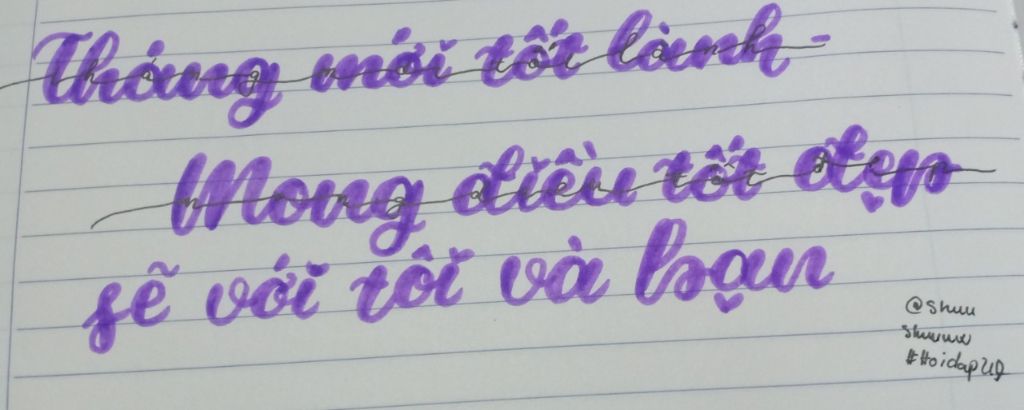 Tháng mới tốt lành -
Mong điều tốt đẹp
sẽ với tôi và bạn
@shuu
shuuuu
#Hoidap